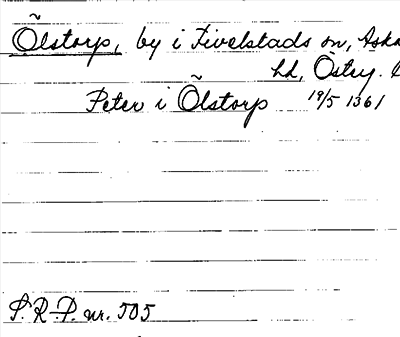 Õlstorp, by i Fivelstads sn, Aska
hd, Östg.
Peter i Õlstorp 19/5 1361
S. R-P. nr. 505